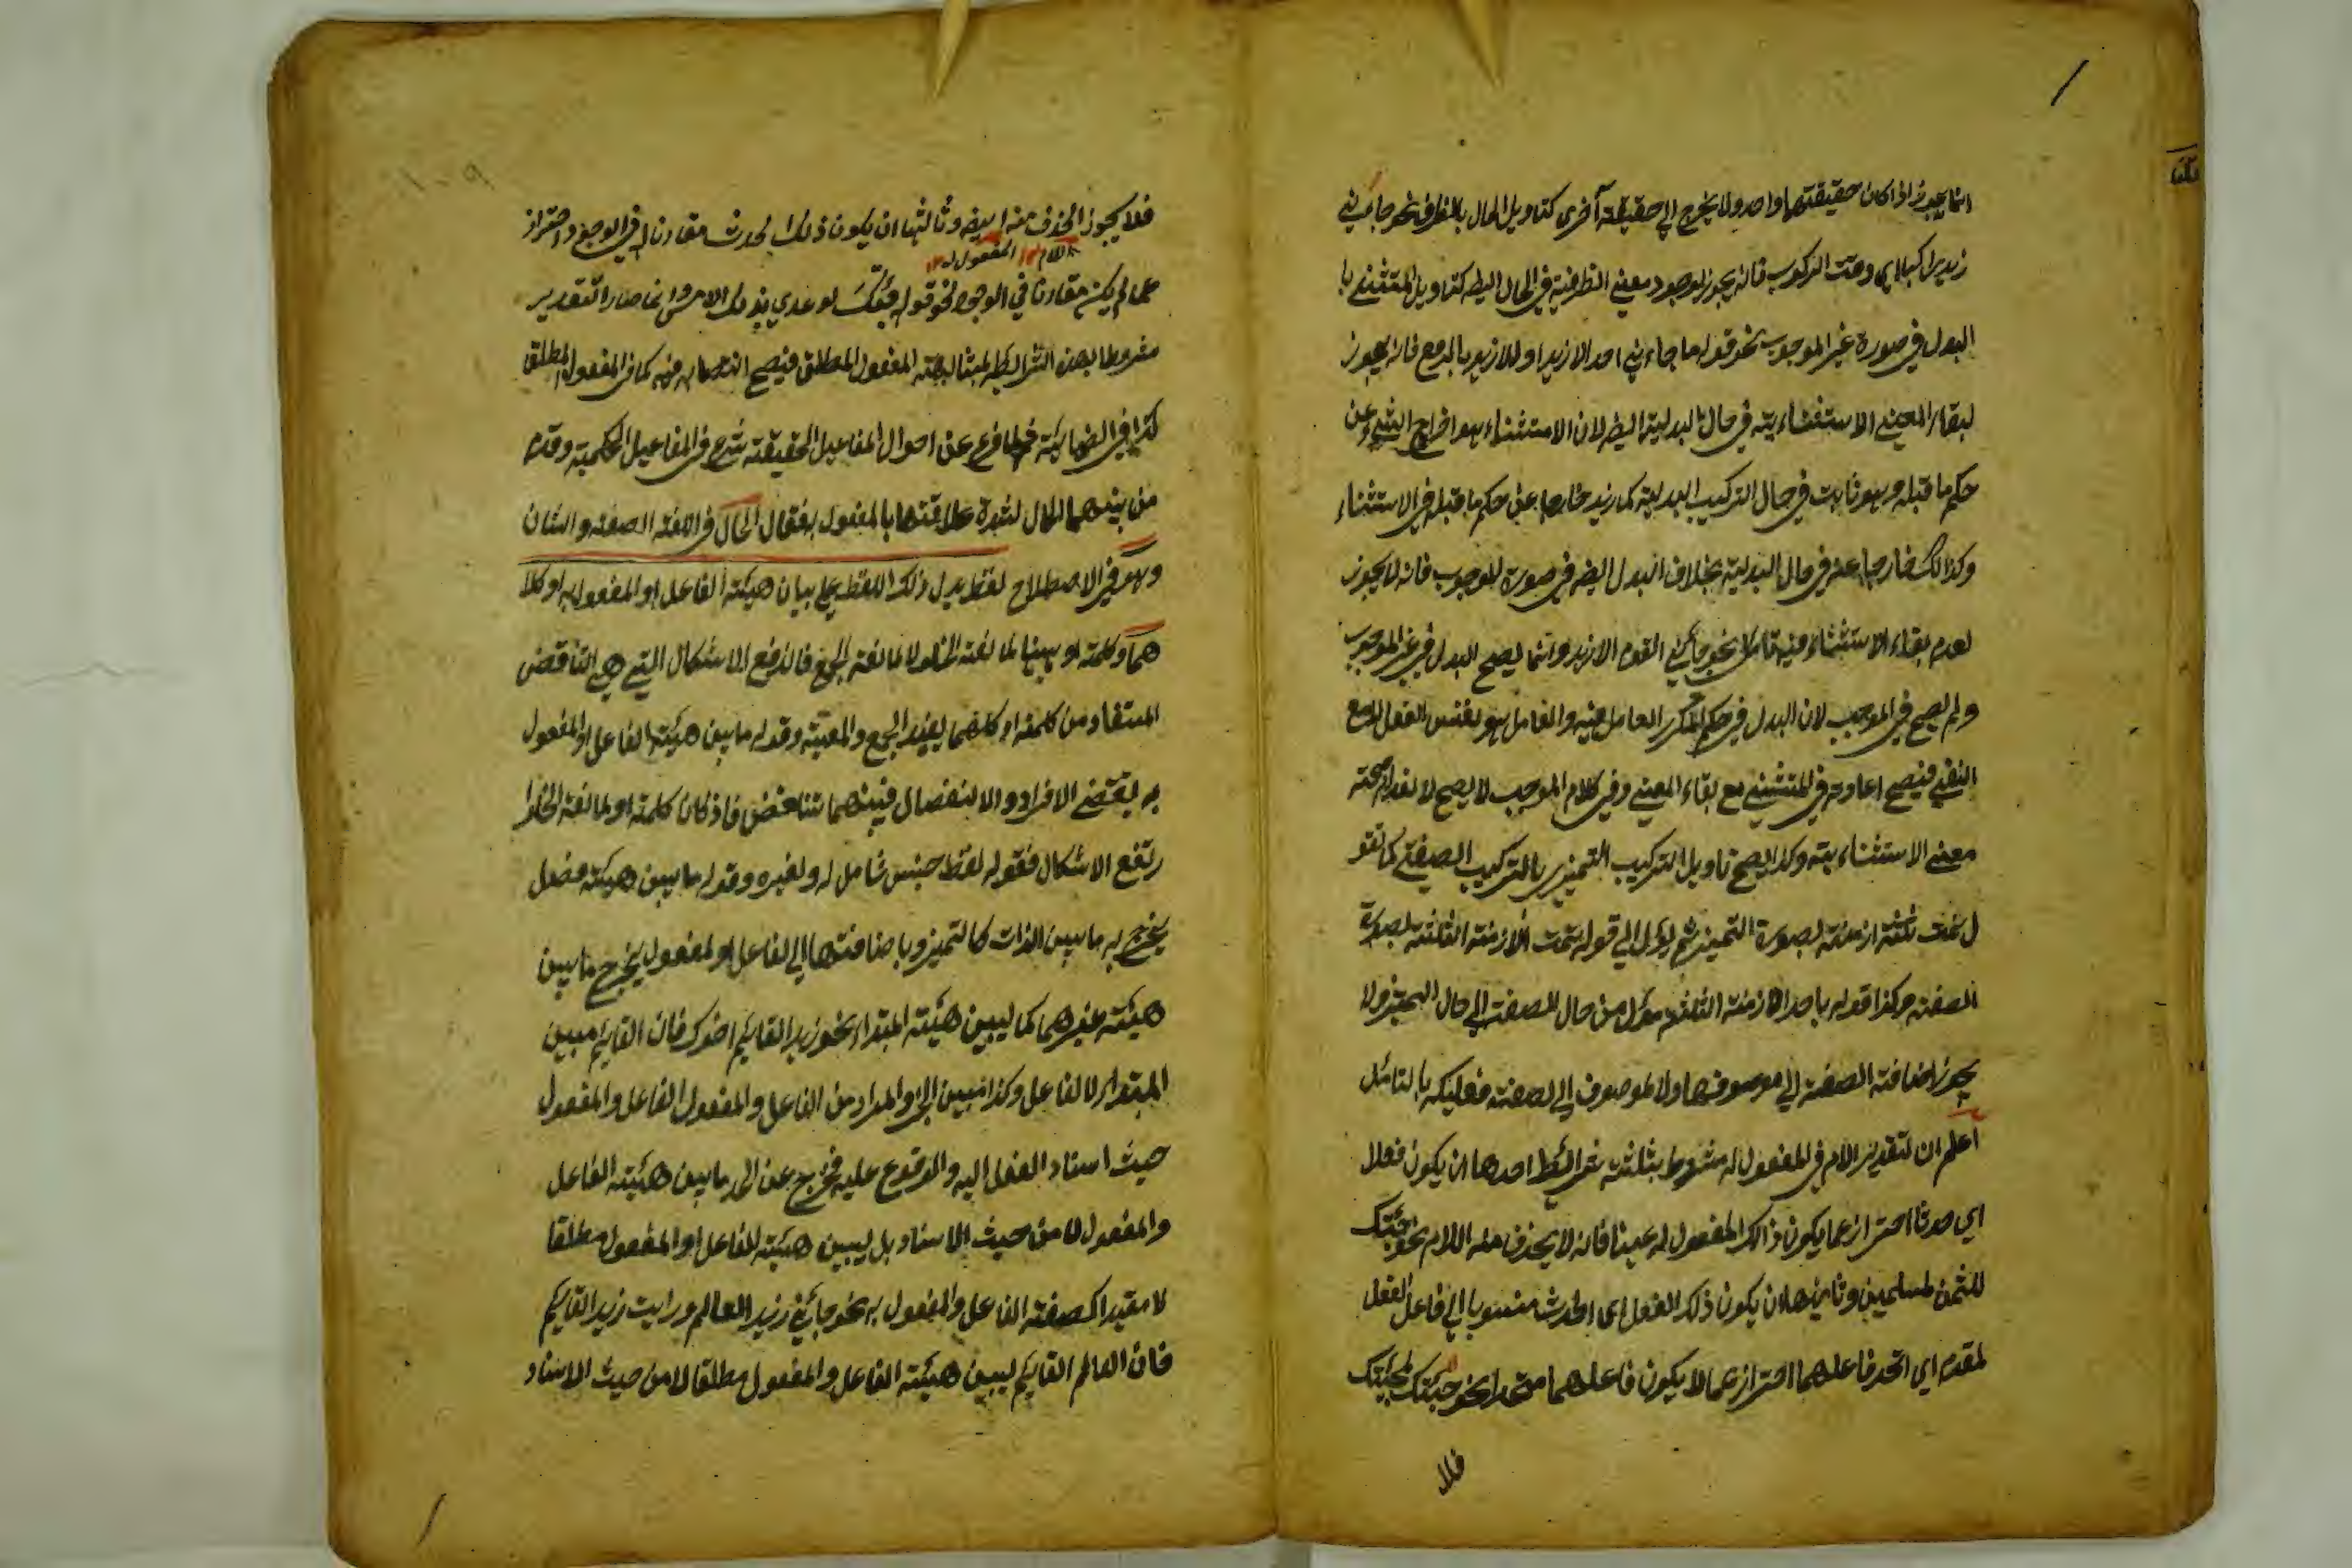 انما يجوز اذا كان حقيقتهما واحد ولا يخرج الى حقيقة آخرى كتاويل الحال بالظرف نحو جاءني
زيد راكبا اي وقت الركوب فانه يجوز لوجود معنى الظرفية في الحال ايضا كتاويل المستثنى با
البدل في صورة غير الموجب نحو قوله ما جاءني احد الا زيدا والا زيد بالرفع فانه يجوز
لبقاء المعنى الاستثنائية في حال البدلية ايضا لان الاستثناء هو اخراج الشيء عن
حكم ما قبله وهو ثابت في حال التركيب البدلية كما زيد خارجا عن حكم ما قبله في الاستثناء
وكذلك خارجا عنه في حال البدلية بخلاف البدل ايضا في صورة الموجب فانه لا يجوز
لعدم بقاء الاستثناء فيه نحو جاءني القوم الا زيد وانما يصح البدل في غير الموجب
ولم يصح في الموجب لان البدل في حكم تكرير العامل فيه والعامل هو نفس الفعل مع
النفي فيصح اعادته في المستثنى مع بقاء المعنى وفي كلام الموجب لا يصح لانعدام صحته
معنى الاستثنائية وكذا يصح تاويل التركيب التميزي بالتركيب الصفتي كما تقو
ل تمت ثلثة ازمنة بصورة التميز ثم يؤل الى قوله تمت الازمنة الثلثة بصورة
الصفة وكذا قوله باحد الازمنة الثلثة مؤل من حال الصفت الى حال التميز ولا
يجوز اضافة الصفة الى موصوفها ولا الموصوف الى الصفة فعليك بالتامل
اعلم ان تقدير اللام في المفعول له مشروط بثلثة شرائط احدها ان يكون فعلا
اي حدثا احتراز عما يكون ذالك المفعول له عينا فانه لا يحذف منه اللام نحو جئتك
للثمن وثانيها ان يكون ذلك الفعل اي الحدث منسوبا الى فاعل الفعل
لمقدم اي اتحد فاعلهما احتراز عما لا يكون فاعلهما متحدا نحو جئتك لمجيئك
فلا
فلا يجوز الحذف منه ايضا وثالثها ان يكون ذلك الحدث مقارنا له في الوجود واحتراز
اللام ١٢ المفعول له ١٢
عما لم يكن مقارنا في الوجود نحو قوله جئتك لوعدي بذلك الامس وانما صار التقدير
مشروطا بهذه الشرائط لمشابهة المفعول المطلق فيصح انتصابه فيه كما في المفعول المطلق
كذا في الضوابية فلما فرغ عن احوال المفاعيل الحقيقة شرع في المفاعيل الحكمية وقدم
من بينهما الحال لشدة علاقتها بالمفعول فقال الحال في اللغة الصفة والشان
وهو في الاصطلاح لفظ يدل ذلك اللفظ على بيان هيئة الفاعل او المفعول به او كلا
هما وكلمة او ههنا لمانعة الخلو لا لمانعة الجمع فاندفع الاشكال التي هي التناقض
المستفاد من كلمة او كلاهما يفيد الجمع والمعية وقوله ما يبين هيئة الفاعل او المفعول
به يقتضي الافراد والانفصال فبينهما تناقض فاذ كان كلمة او لمانعة الخلو
رتفع الاشكال فقوله لفظ جنس شامل له ولغيره وقوله ما يبين هيئة فصل
يخرج به ما يبين الذات كالتميز وباضافتها الى الفاعل او المفعول يخرج ما يبين
هيئة غيرهما كما يبين هيئة المبتداء نحو زيد القايم اخوك فان القايم مبين
المبتدا لا الفاعل وكذا مبين الخبر والمراد من الفاعل والمفعول الفاعل والمفعول
حيث اسناد الفعل اليه والوقوع عليه فخرج عن الحد ما يبين هيئة الفاعل
والمفعول لا من حيث الاسناد بل يبين هيئة الفاعل او المفعول مطلقا
لا مقيدا كصفة الفاعل والمفعول به نحو جاءني زيد العالم ورايت زيد القايم
فان العالم القايم يبين هيئة الفاعل والمفعول مطلقا لا من حيث الاسناد